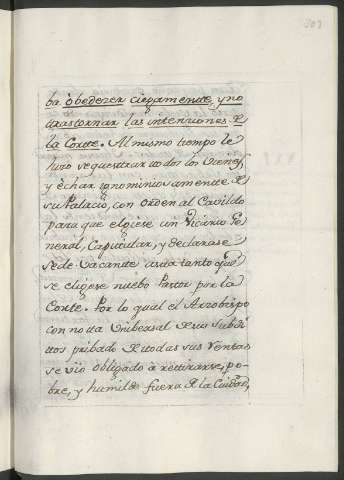 303
ba òbedezer ciegamente, y no
trastornar las intenciones de
la Corte. Al mismo tiempo le
hizo sequestrar todos los vienes,
y èchar ignominiosamente de
su Palacio, con orden al Cavildo
para que eligese un Vicario Ge
neral, Capitular, y declarase
Sede Vacante asta tanto que
se eligese nuebo Pastor por la
Corte. Por lo qual el Arzobispo
con nota Unibersal de sus Subdi
ttos pribado de todas sus Rentas
se viò obligado à retirarse, po-
bre, y humilde fuera de la Ciudad,